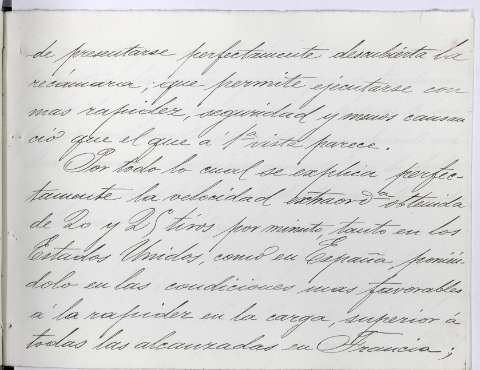 de presentarse perfectamente descubierta la
recámara; que permite ejecutarse con
mas rapidez, seguridad y menos cansan
cio que el que á 1ª vista parece.
Por todo lo cual se explica perfec-
tamente la velocidad extraordª obtenida
de 20 y 25 tiros por minuto, tanto en los
Estados Unidos, como en España, ponién
dolo en las condiciones mas favorables
á la rapidez en la carga, superior á
todas las alcanzadas en Francia;